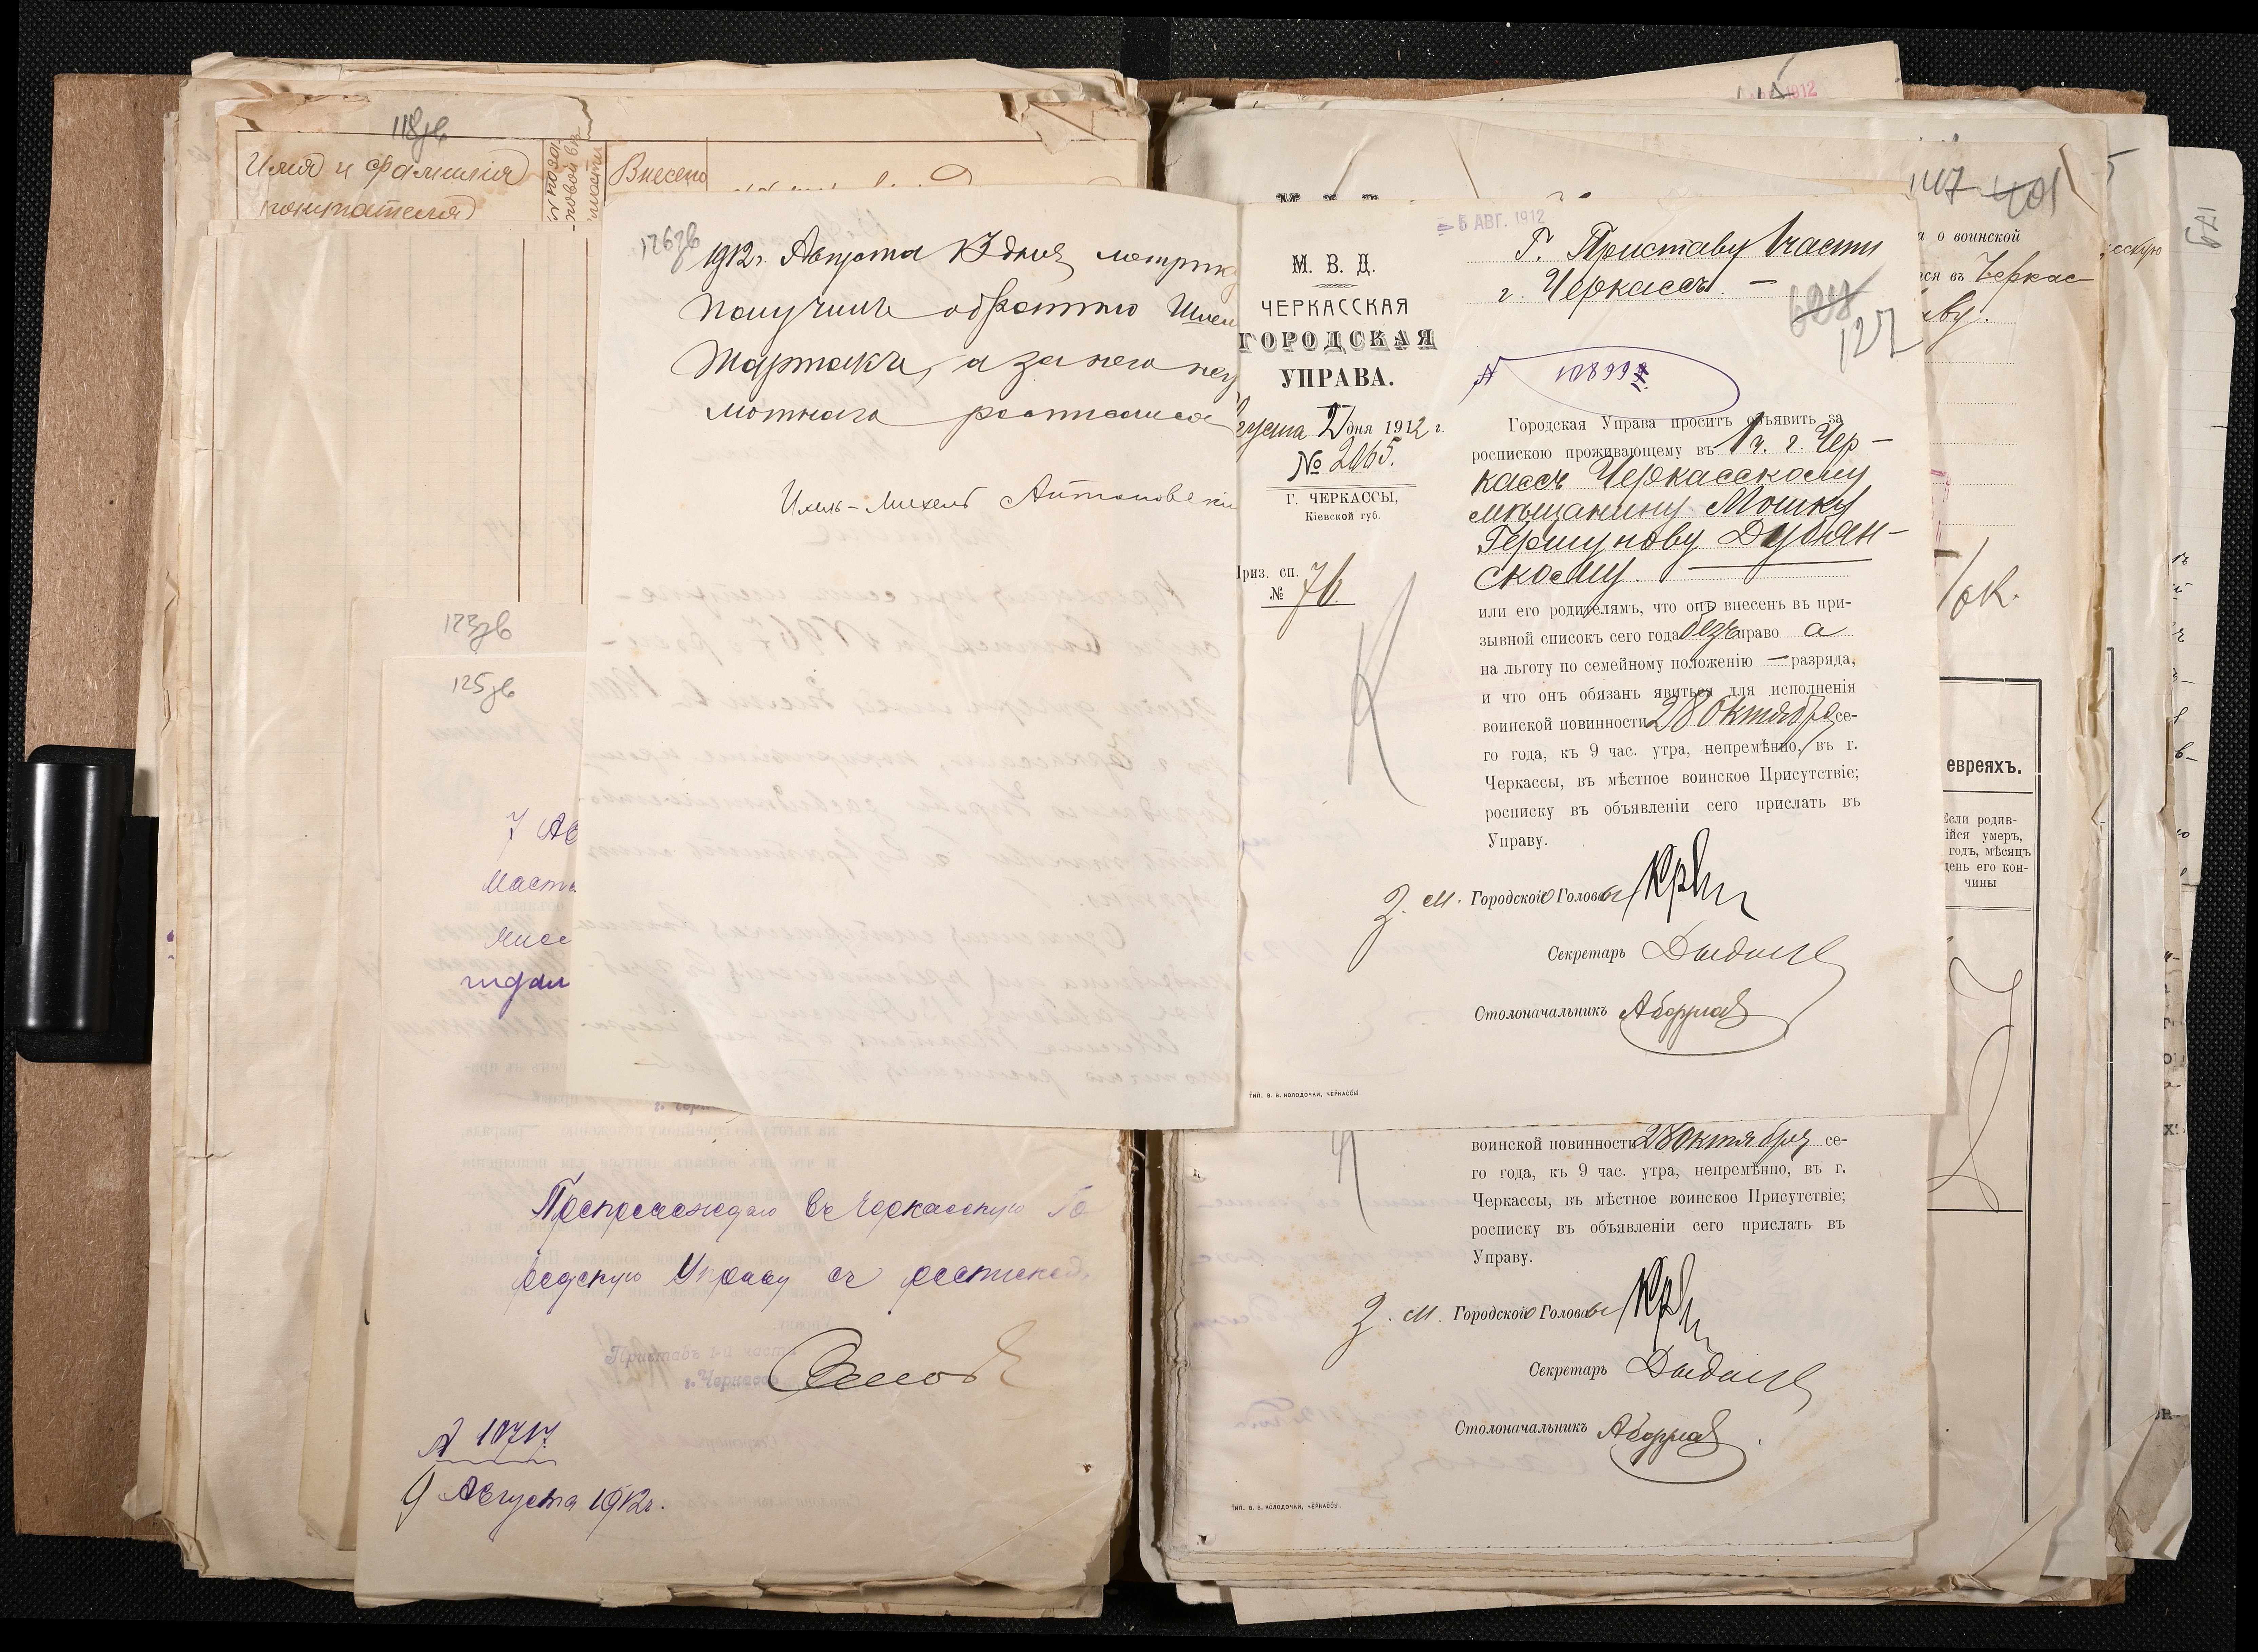 118зв
Имя и фамилія
покупателя
Внесено
126зв
1912 г. Августа 13 дня метрик
получилъ обратно
а за него нег
мотнаго росписался
Антоновскі
123зв
125зв
7 Ав
Маст
гидал
Препровождаю въ Черкасскую Го
родскую Управу съ роспиской.
Приставъ 1-й части
г. Черкассъ
№ 10717.
9 Августа 1912 г.
5 АВГ. 1912
М. В. Д.
ЧЕРКАССКАЯ
ГОРОДСКАЯ
УПРАВА.
густа 2 дня 1912 г.
№ 2065.
Г. ЧЕРКАССЫ,
Кіевской губ.
Приз. сп.
№ 76.
Г. Приставу 1 части
г. Черкассъ. —
628
127
№ 10899
Городская Управа проситъ объявить за
роспискою проживающему въ 1 ч. г. Чер-
кассъ Черкасскому
мѣщанину Мошку
Гершунову Дубян-
скому.
или его родителямъ, что онъ внесенъ въ при-
зывной списокъ сего года безъ права
на льготу по семейному положенію — разряда,
и что онъ обязанъ явиться для исполненія
воинской повинности 28 Октября се-
го года, къ 9 час. утра, непремѣнно, въ г.
Черкассы, въ мѣстное воинское Присутствіе;
росписку въ объявленіи сего прислать въ
Управу.
З. М. Городского Головы
Секретарь
Столоначальникъ
ТИП. В. В. КОЛОДОЧКИ, ЧЕРКАССЫ
воинской повинности 28 Октября се-
го года, къ 9 час. утра, непремѣнно, въ г.
Черкассы, въ мѣстное воинское Присутствіе;
росписку въ объявленіи сего прислать въ
Управу.
З. М. Городского Головы
Секретарь
Столоначальникъ
ТИП. В. В. КОЛОДОЧКИ, ЧЕРКАССЫ
1912
147 401
а о воинской
ся въ Черкас
ву.
ок.
евреяхъ.
Если родив-
шійся умеръ,
годъ, мѣсяцъ
день его кон-
чины
179